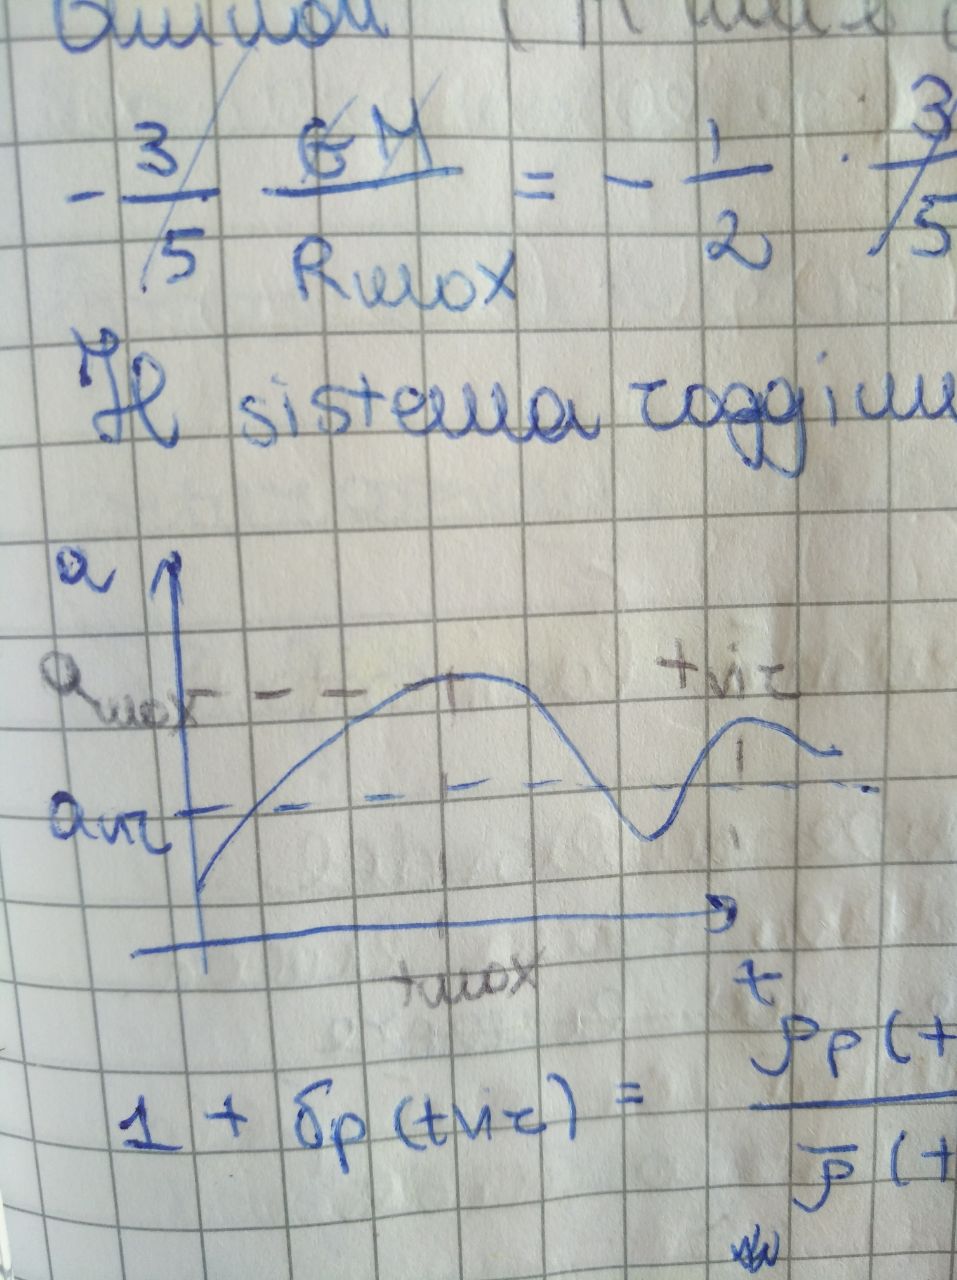 - 3/5 GM/Rmax = - 1/2 · 3/5
Il sistema raggiun
a
amax
tvir
avir
tmax
t
1 + δp (tvir) = ρp (t / ρ̄ (t